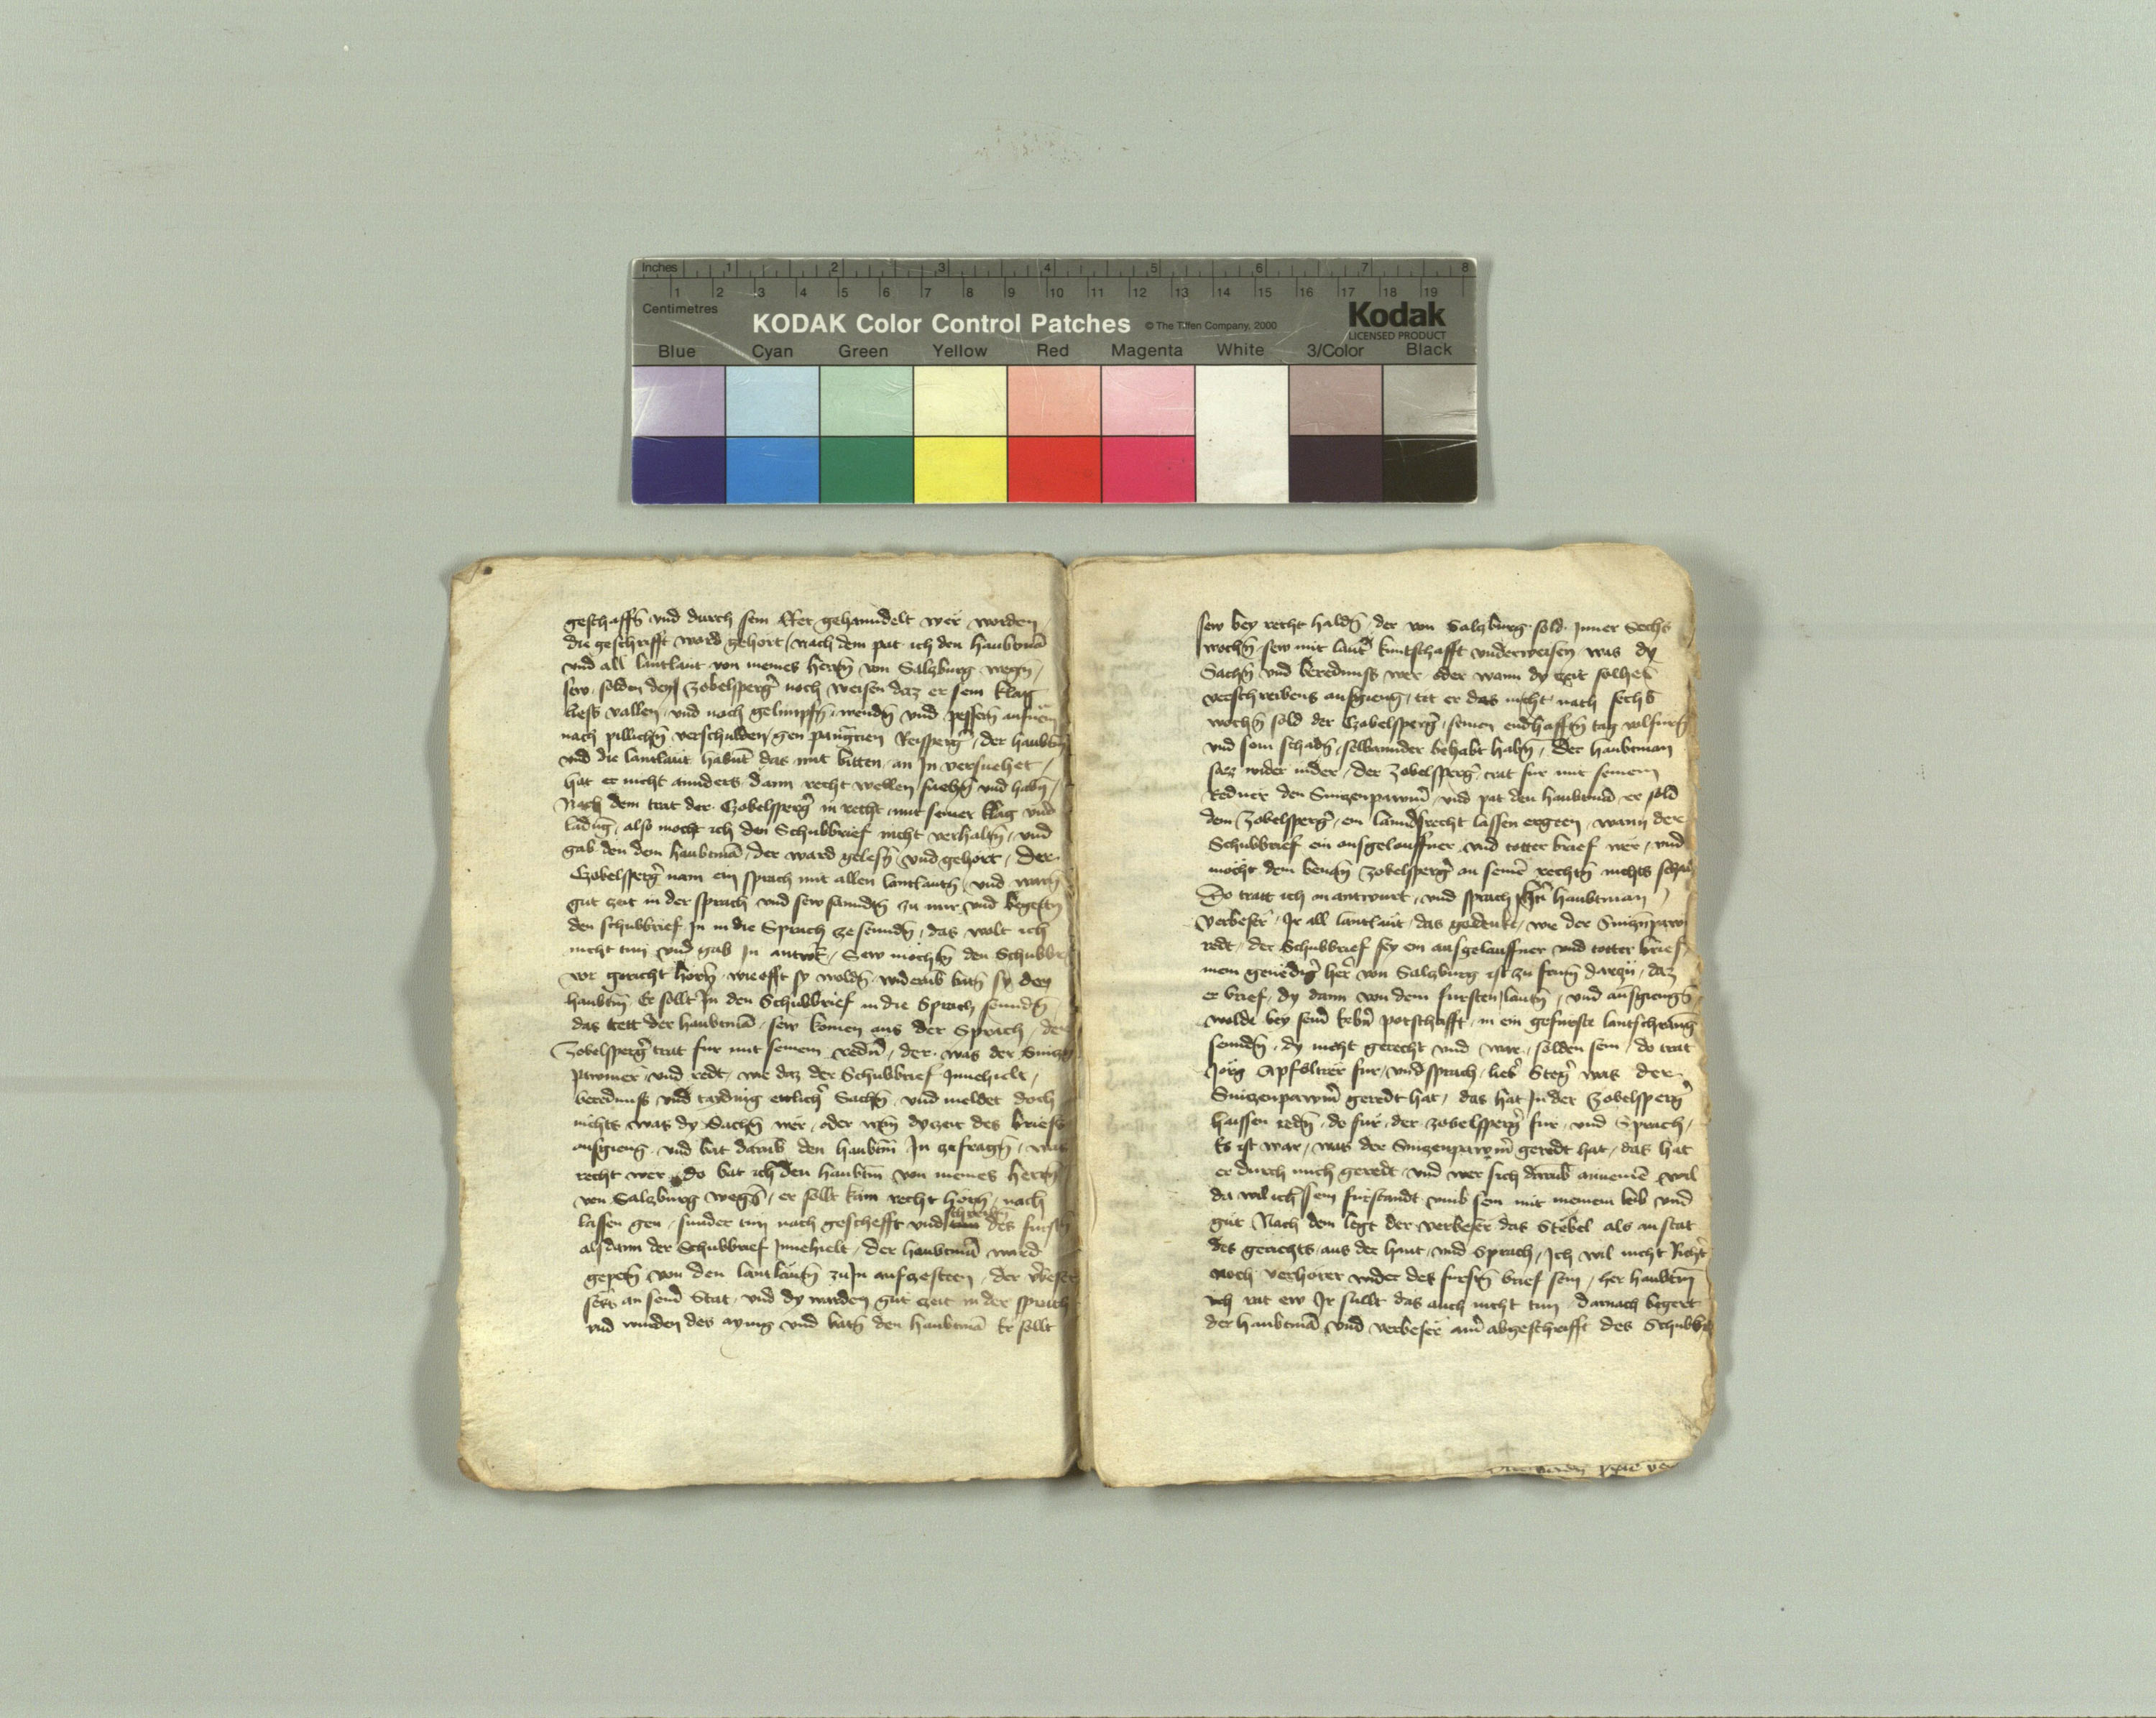 Inches 1 2 3 4 5 6 7 8
1 2 3 4 5 6 7 8 9 10 11 12 13 14 15 16 17 18 19
Centimetres
KODAK Color Control Patches © The Tiffen Company, 2000 Kodak
LICENSED PRODUCT
Blue Cyan Green Yellow Red Magenta White 3/Color Black
geschafft vnd durch sein Ret gehanndelt wer worden
die geschrifft ward gehort / nach dem pat ich den haubtmā
vnd all lantlaut von meines herrn von Salzburg wegn /
sew solden den Zobelsperg̃ noch weisen daz er sein klag
liess vallen vnd noch gelimpfn̄ wendn̄ vnd pessern
nach pillichn̄ verschulden gen Reisperg̃ / der haubtm̄
vnd die lantlaut habnt das mit bitten an In versuehet /
hat er nicht annders dann recht wellen suehn̄ vnd habn̄ /
Nach dem trat der Czobelsperg̃ in recht mit seiner klag vnd
ladūg / also mocht ich den Schubbrief nicht verhaltn̄ / vnd
gab den dem haubtmā / der ward gelesn̄ vnd gehort / Der
Czobelsperg̃ nam ein sprach mit allen lantlautn̄ / vnd warn̄
gut zeit in der sprach vnd sew sanndtn̄ zu mir vnd begertn̄
den schubbrief In in die Sprach ze senndn̄ / das wolt ich
nicht tun vnd gab In antwr̄t / Sew mochtn̄ den Schubbr
vor gericht horn̄ wie offt sy woldn̄ widerūb batn̄ sy den
haubtm̄ Er sollt In den Schubbrief in die Sprach senndn̄
das tett der haubtmā / sew komen aus der Sprach / der
Zobelsperg̃ trat fur mit seinem redn̄ / der was der
pawmer / vnd redt / wie daz der Schubbrief Innehielt /
berednuss vnd tayding etlicher Sachn̄ vnd meldet doch
nichts was dy Sachn̄ wer / oder wen̄ dy zeit des briefs
ausgieng / vnd bat darūb den haubtm̄ In zefragn̄ / was
recht wer / do bat ich den haubtm̄ von meines herrn
von Salzburg wegn̄ / er sollt kain recht horn̄ / nach
lassen gen / sunder tun nach gescheft vnd des furstn̄
als dann der Schubbrief Innehielt / der haubtmā ward
gepetn̄ von den lantlautn̄ zu In aufzesteen / der v̄beser
sess an seiner Stat / vnd dy warden gut zeit in der sprach
vnd wurden des aynig vnd batn̄ den haubtmā Er sollt
sew bey recht haldn̄ / der von Salzburg sold Inner Sechs
wochn̄ sew mit lautr̄ kuntschafft vnderweisen was dy
Sachn̄ vnd beredнuss wer oder wann dy zeit solhes
verschreibens ausgieng / tet er das nicht nach sechs
wochn̄ sold der Czobelsperg̃ / seinen endhafftn̄ tag volfurn̄
vnd sein schadn̄ / selbannder behabt habn̄ / Der haubtman
sazz wider nider / der Zobelsperg̃ trat fur mit seinem
Redner den Sinzenpawm̄ / vnd pat den haubtmā er sold
dem Zobelsperg̃ / ein lanndsrecht lassen ergeen / wann der
Schubbrief ein ausgelauffner vnd totter brief wer / vnd
mocht dem benān Zobelsperg̃ an seinē rechtn̄ nichts schad
Do tratt ich in antwurt / vnd sprach her haubtman /
Verbeser / Ir all lantlaut / das gedenkt / wie der Sinznpawm
redt / der Schubbrief sey ein ausgelauffner vnd totter brief
mein genedig̃ her von Salzburg ist zu frum̄ darzu / daz
er brief / dy dann von dem fursten lautn̄ / vnd ausgiengn̄ /
wolde bey seiner erbn̄ potschafft / in ein gefurste lantschrann̄
senndn̄ / dy nicht gerecht vnd war / solden sein / do trat
Jorg Apfoltrer fur / vnd sprach / lieber Steg̃ was der
Sinzenpawm̄ geredt hat / das hat In der Zobelsperg̃
haissen redn̄ / do fur der zobelsperg̃ fur / vnd Sprach /
Es ist war / was der Sinzenpawm̄ geredt hat / das hat
er durch mich geredt / vnd wer sich darūb annemē wil
da wil ich sein furstandt vmb sein mit meinem leib vnd
gut Nach dem legt der verbeser das Stebel als an stat
des gerichts / aus der hant / vnd Sprach / Ich wil nicht Richter
noch verhorer wider des furstn̄ brief sein / her haubtm̄
ich rat ew Ir sullt das auch nicht tun / darnach begert
der haubtmā vnd verbeser ainer abgeschrifft des Schubbr